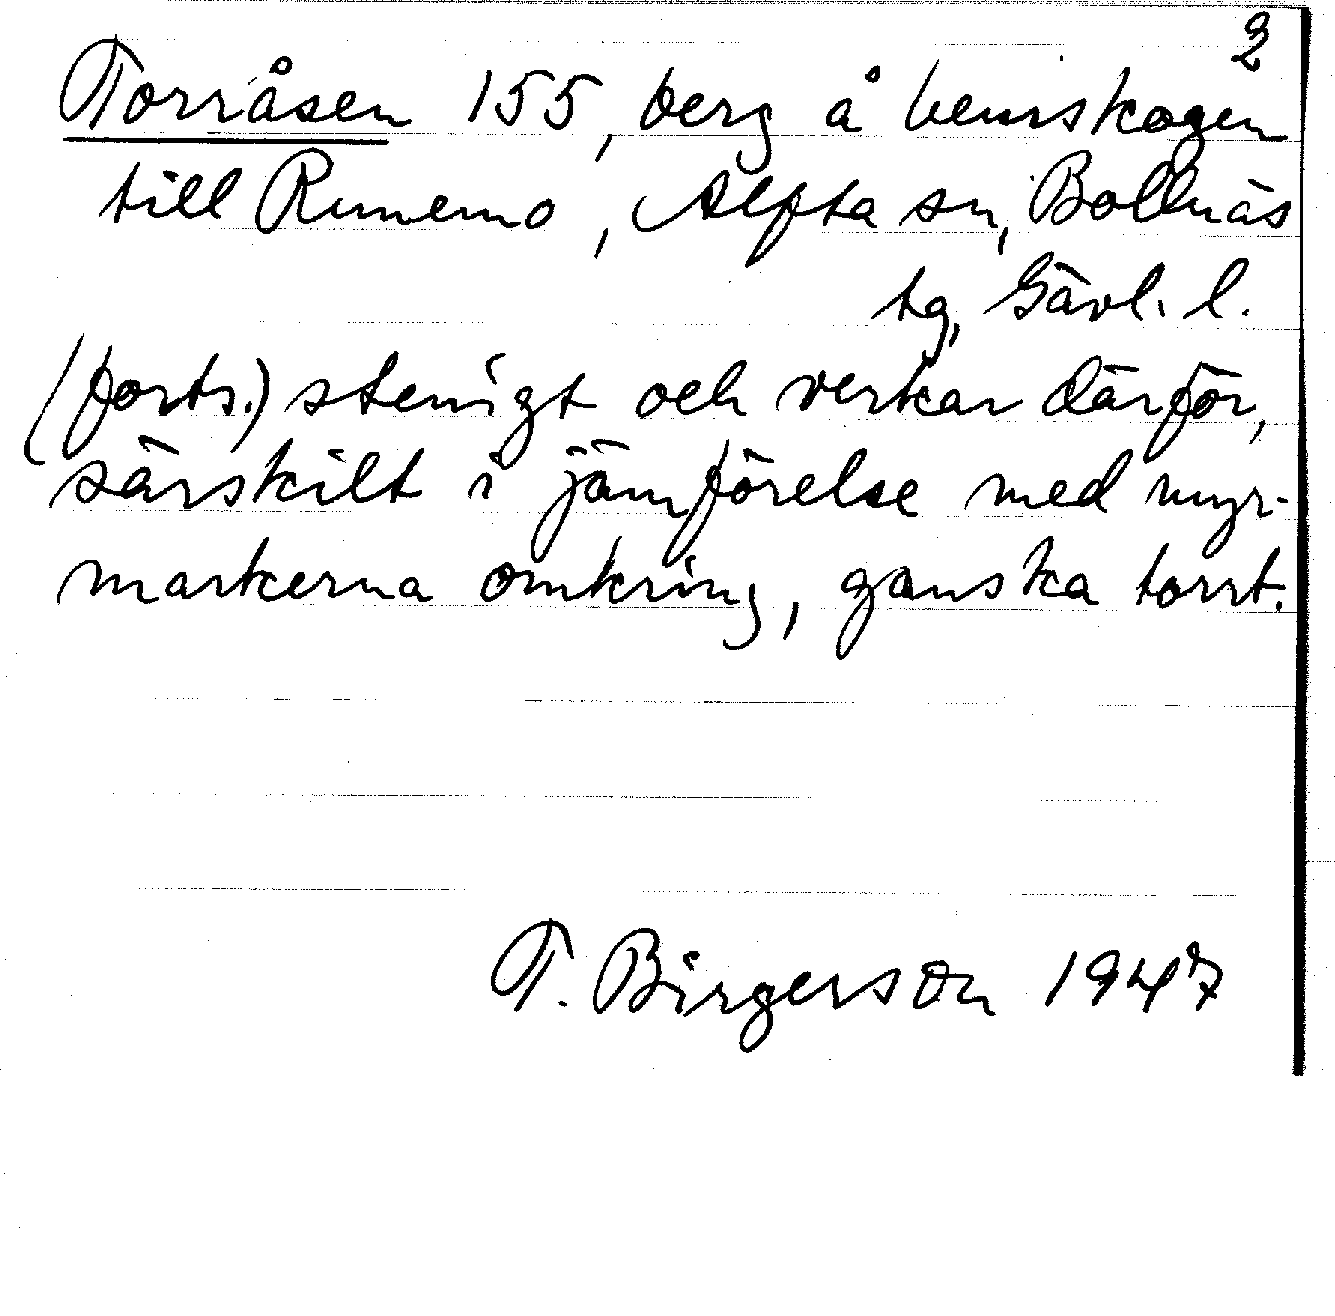 2
Torråsen 155, berg å hemskogen
till Runemo, Alfta sn, Bollnäs
tg, Gävl. l.
(forts.) stenigt och verkar därför,
särskilt i jämförelse med myr-
markerna omkring, ganska torrt.
T. Birgerson 1947